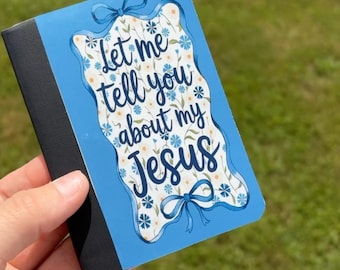 Let me
tell you
about my
Jesus